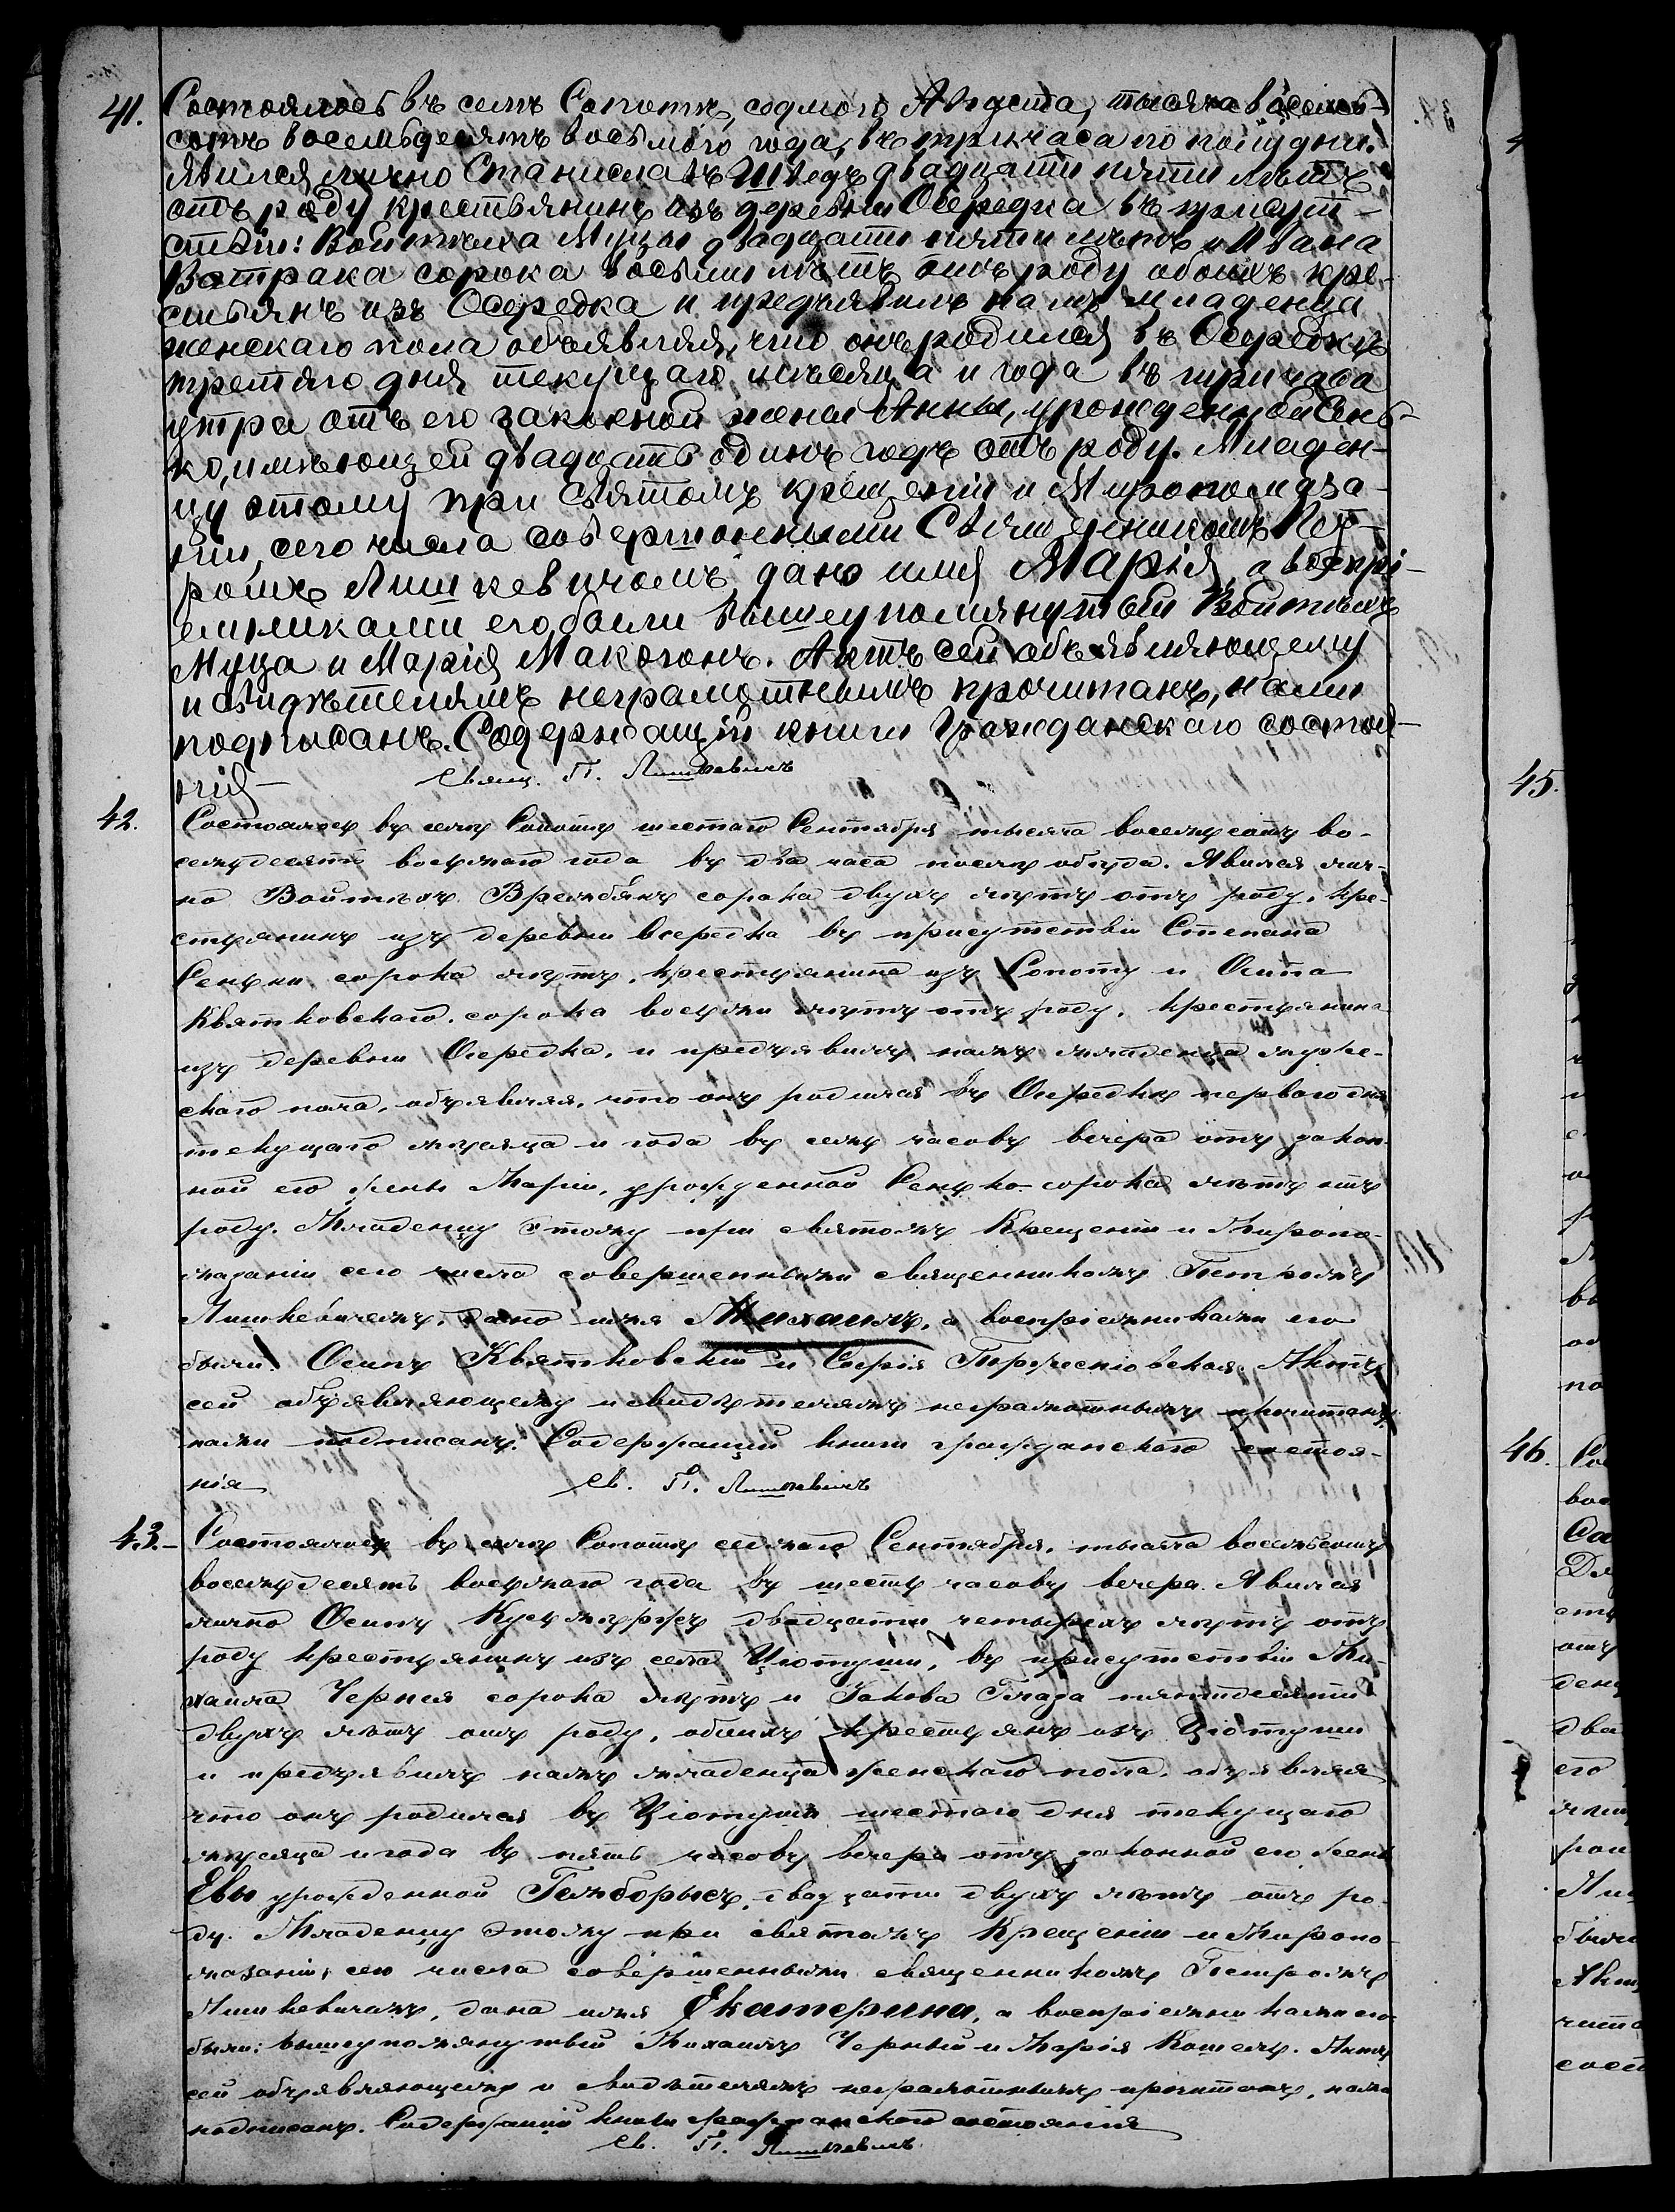 41. Состоялось въ селѣ Сопотѣ, седмого Августа, тысяча восемь-
сотъ восемьдесятъ восьмого года, въ три часа по полудни.
Явился лично Станиславъ Шведъ двадцати пяти лѣтъ
отъ роду крестьянинъ изъ деревни Осередка въ присут-
ствіи: Войтѣха Муцы двадцати пяти лѣтъ и Ивана
Ватрака сорока восьми лѣтъ отъ роду обоихъ кре-
стьянъ изъ Осередка и предъявилъ намъ младенца
женскаго пола объявляя, что онъ родился въ Осередкѣ
третяго дня текущаго мѣсяца и года въ три часа
утра отъ его законной жены Анны, урожденной Сень-
ко, имѣющей двадцать одинъ годъ отъ роду. Младен-
цу этому при Святомъ крещеніи и Миропомаза-
ніи, сего числа совершонными Священникомъ Пет-
ромъ Лишкевичомъ дано имя Марія, а воспрі-
емниками его были вышеупомянутый Войтѣхъ
Муца и Марія Макогонъ. Актъ сей объявляющему
и свидѣтелямъ неграмотнымъ прочитанъ, нами
подписанъ. Содержащій книги Гражданскаго состоя-
нія Свящ. П. Лишкевичъ
42. Состоялось въ селѣ Сопотѣ шестаго Сентября тысяча восемьсотъ во-
семьдесятъ восьмаго года въ два часа послѣ обѣда. Явился лич-
но Войтѣхъ Врембякъ сорока двухъ лѣтъ отъ роду, кре-
стьянинъ изъ деревни Осередка въ присутствіи Степана
Сеньки сорока лѣтъ, крестьянина изъ Сопотъ и Осипа
Квятковскаго, сорока восьми лѣтъ отъ роду, крестьянина
изъ деревни Осередка, и предъявилъ намъ младенца муже-
скаго пола, объявляя, что онъ родился въ Осередкѣ перваго дня
текущаго мѣсяца и года въ семь часовъ вечера отъ закон-
ной его жены Маріи, урожденной Сенько сорока лѣтъ отъ
роду. Младенцу этому при святомъ Крещеніи и Миропо-
мазаніи сего числа совершенными священникомъ Петромъ
Лишкевичемъ, дано имя Михаилъ, а воспріемниками его
были: Осипъ Квятковскій и Софія Актъ
сей объявляющему и свидѣтелямъ неграмотнымъ прочитанъ,
нами подписанъ. Содержащій книги гражданскаго состоя-
нія Св. П. Лишкевичъ
43. Состоялось въ селѣ Сопотѣ седмаго Сентября, тысяча восемьсотъ
восемьдесятъ восьмаго года въ шесть часовъ вечера. Явился
лично Осипъ двадцати четырехъ лѣтъ отъ
роду крестьянинъ изъ села Ціотуши, въ присутствіи Ми-
хаила Чернея сорока лѣтъ и Якова пятидесяти
двухъ лѣтъ отъ роду, обоихъ крестьянъ изъ Ціотуши
и предъявилъ намъ младенца женскаго пола, объявляя
что онъ родился въ Ціотуши шестаго дня текущаго
мѣсяца и года въ пять часовъ вечера отъ законной его жены
Евы урожденной двадцати двухъ лѣтъ отъ ро-
ду. Младенцу этому при святомъ Крещеніи и Миропо-
мазаніи, сего числа совершенными священникомъ Петромъ
Лишкевичамъ, дано имя Екатерина, а воспріемниками его
были: вышеупомянутый Михаилъ Черный и Марія Кошелъ. Актъ
сей объявляющему и свидѣтелямъ неграмотнымъ прочитанъ, нами
подписанъ. Содержащій книги гражданскаго состоянія
Св. П. Лишкевичъ
45.
46.